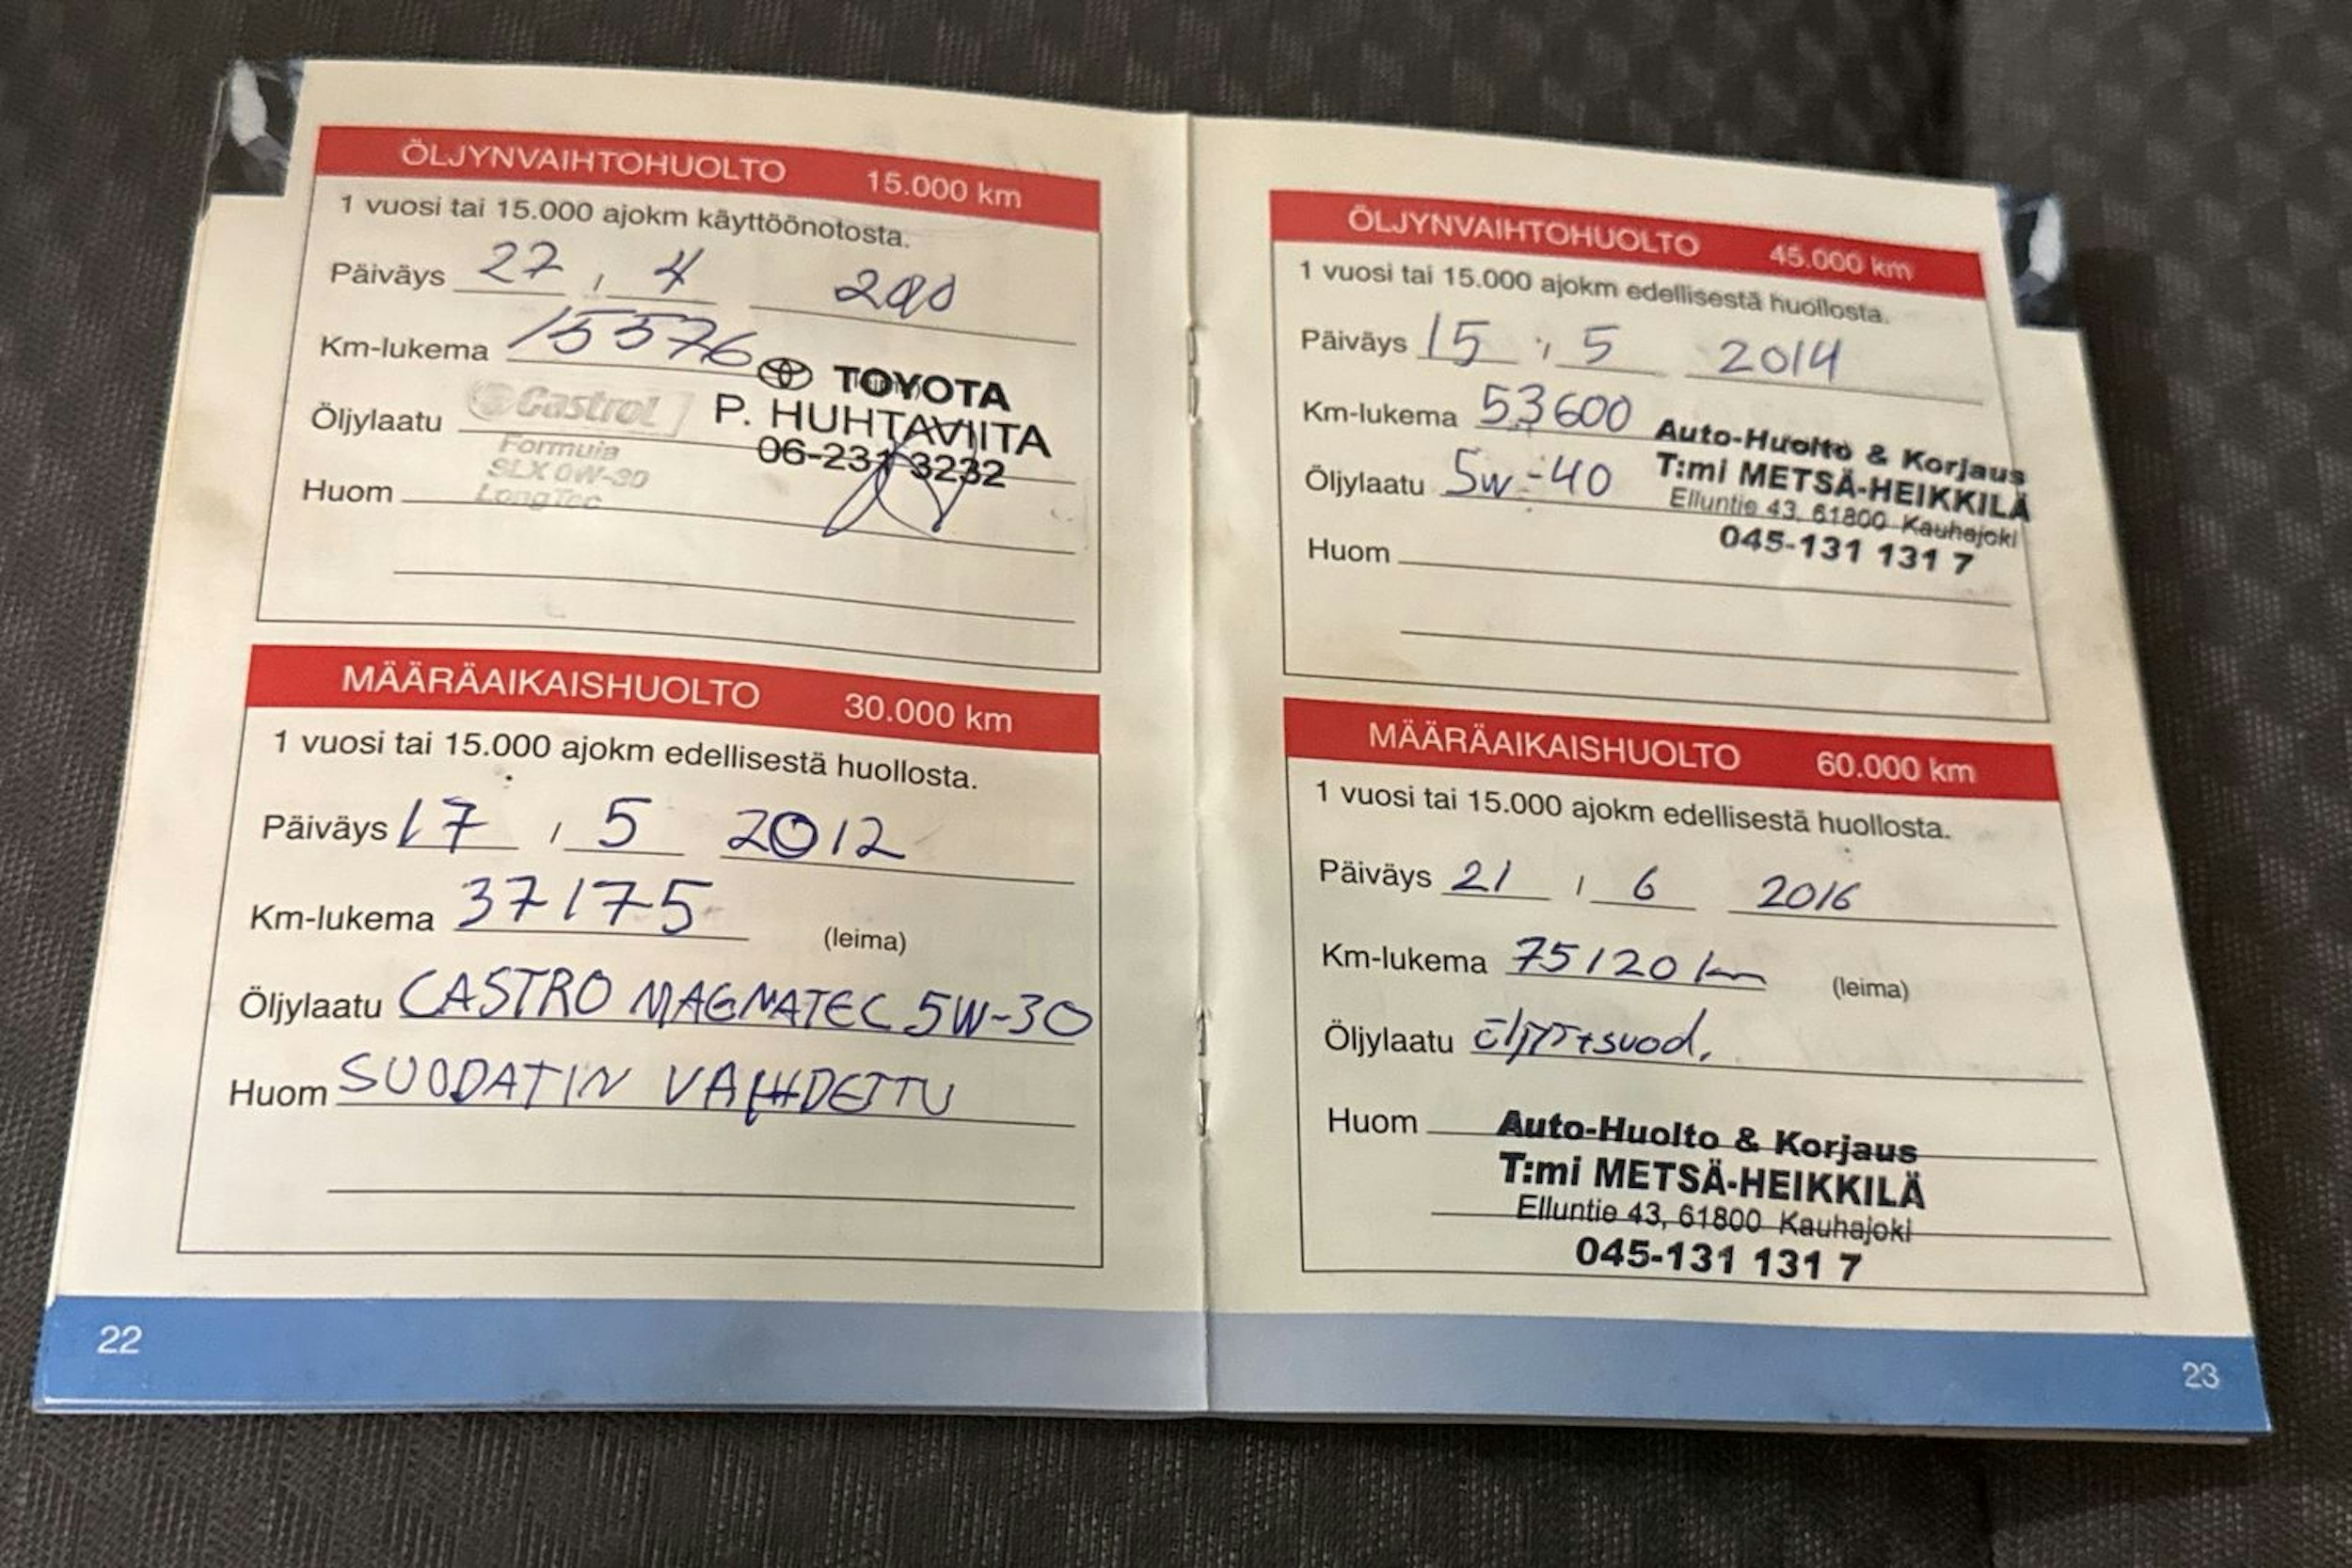 ÖLJYNVAIHTOHUOLTO 15.000 km
1 vuosi tai 15.000 ajokm käyttöönotosta.
Päiväys 27 / 4
Km-lukema 15576
TOYOTA
Öljylaatu Castrol P. HUHTAVIITA
Formula 06-231 3232
SLX 0W-30
Huom LongTec
MÄÄRÄAIKAISHUOLTO 30.000 km
1 vuosi tai 15.000 ajokm edellisestä huollosta.
Päiväys 17 / 5 2012
Km-lukema 37175 (leima)
Öljylaatu CASTRO MAGNATEC 5W-30
Huom SUODATIN VAIHDETTU
22
ÖLJYNVAIHTOHUOLTO 45.000 km
1 vuosi tai 15.000 ajokm edellisestä huollosta.
Päiväys 15 / 5 2014
Km-lukema 53600
Auto-Huolto & Korjaus
Öljylaatu 5w-40 T:mi METSÄ-HEIKKILÄ
Elluntie 43, 61800 Kauhajoki
Huom 045-131 131 7
MÄÄRÄAIKAISHUOLTO 60.000 km
1 vuosi tai 15.000 ajokm edellisestä huollosta.
Päiväys 21 / 6 2016
Km-lukema 75120 km (leima)
Öljylaatu öljyt+suod.
Huom Auto-Huolto & Korjaus
T:mi METSÄ-HEIKKILÄ
Elluntie 43, 61800 Kauhajoki
045-131 131 7
23